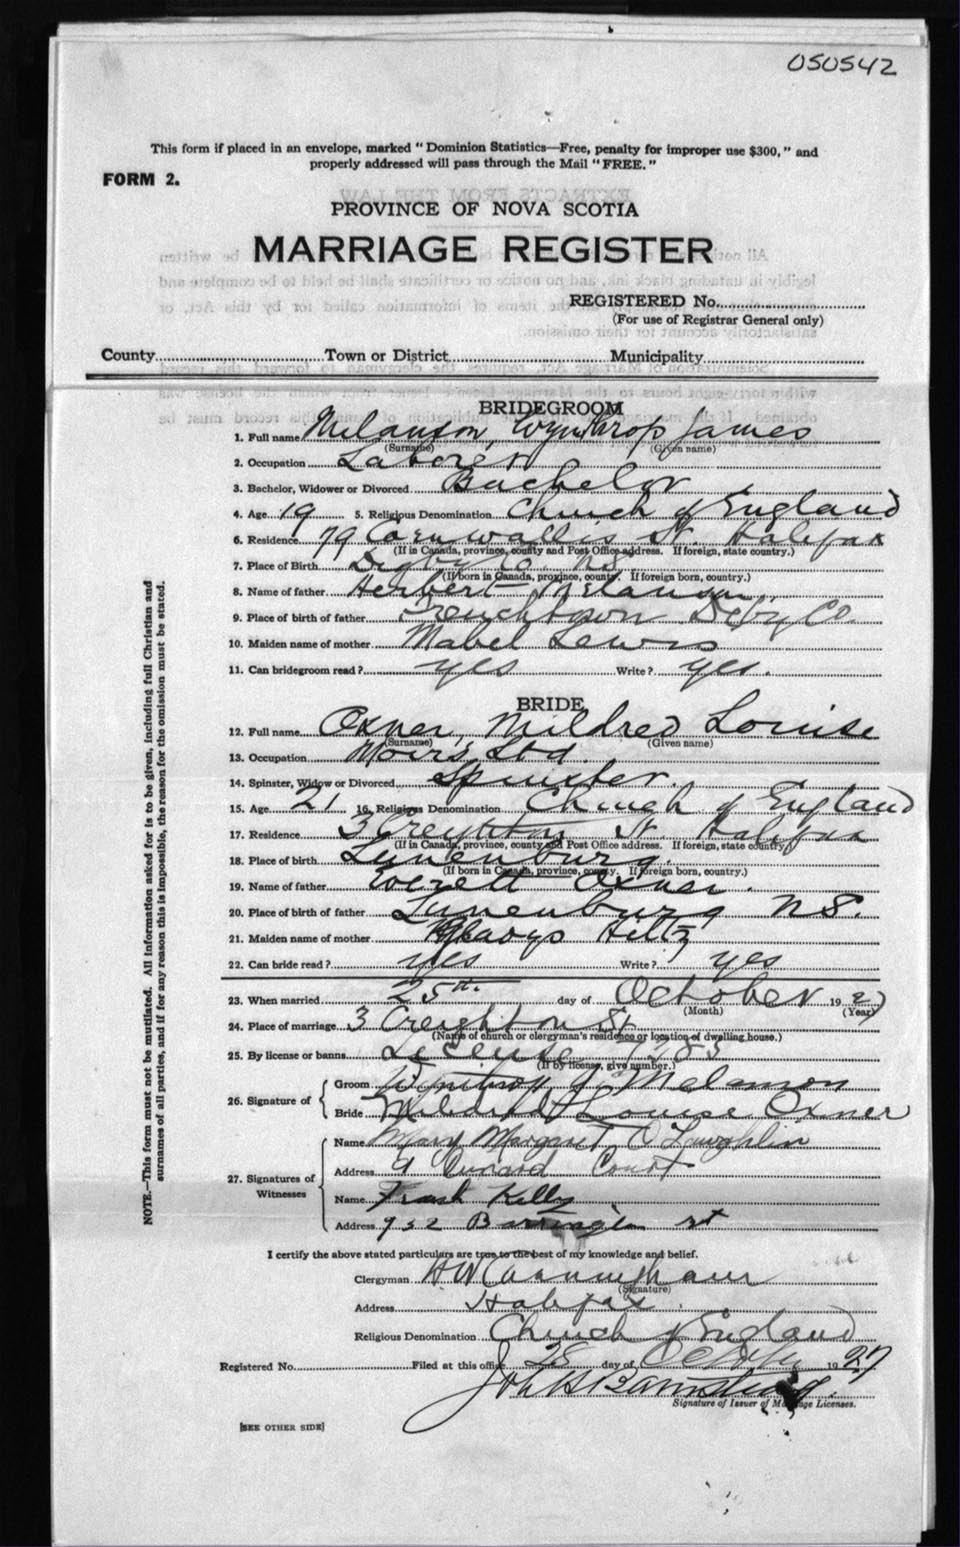 050542
This form if placed in an envelope, marked "Dominion Statistics—Free, penalty for improper use $300," and
properly addressed will pass through the Mail "FREE."
FORM 2.
PROVINCE OF NOVA SCOTIA
MARRIAGE REGISTER
REGISTERED No.
(For use of Registrar General only)
County Town or District Municipality
BRIDEGROOM
1. Full name Melanson, Wynthrop James
(Surname) (Given name)
2. Occupation Laborer
3. Bachelor, Widower or Divorced Bachelor
4. Age 19 5. Religious Denomination Church of England
6. Residence 79 Cornwallis St. Halifax
(If in Canada, province, county and Post Office address. If foreign, state country.)
7. Place of Birth Digby Co. NS
(If born in Canada, province, county. If foreign born, country.)
8. Name of father Herbert Melanson
9. Place of birth of father Frenchtown Digby Co.
10. Maiden name of mother Mabel Lewis
11. Can bridegroom read? yes Write? yes.
BRIDE
12. Full name Oxner, Mildred Louise
(Surname) (Given name)
13. Occupation Moirs Ltd.
14. Spinster, Widow or Divorced Spinster.
15. Age 21 16. Religious Denomination Church of England
17. Residence 3 Creighton St. Halifax
(If in Canada, province, county and Post Office address. If foreign, state country)
18. Place of birth Lunenburg.
(If born in Canada, province, county. If foreign born, country.)
19. Name of father Everett Oxner.
20. Place of birth of father Lunenburg NS.
21. Maiden name of mother Gladys Hiltz
22. Can bride read? yes Write? yes
23. When married 25th day of October 1927
(Month) (Year)
24. Place of marriage 3 Creighton St
(Name of church or clergyman's residence or location of dwelling house.)
25. By license or banns License
(If by license, give number.)
26. Signature of
Groom J. Melanson
Bride Mildred Louise Oxner
27. Signatures of Witnesses
Name Mary Margaret O'Laughlin
Address 9 Cunard Court
Name Frank Kelly
Address 932 Barrington st
I certify the above stated particulars are true to the best of my knowledge and belief.
Clergyman HW Cunningham
(Signature)
Address Halifax.
Religious Denomination Church of England
Registered No. Filed at this office 28 day of October 1927
Signature of Issuer of Marriage Licenses.
[SEE OTHER SIDE]
NOTE.—This form must not be mutilated. All information asked for is to be given, including full Christian and
surnames of all parties, and if for any reason this is impossible, the reason for the omission must be stated.